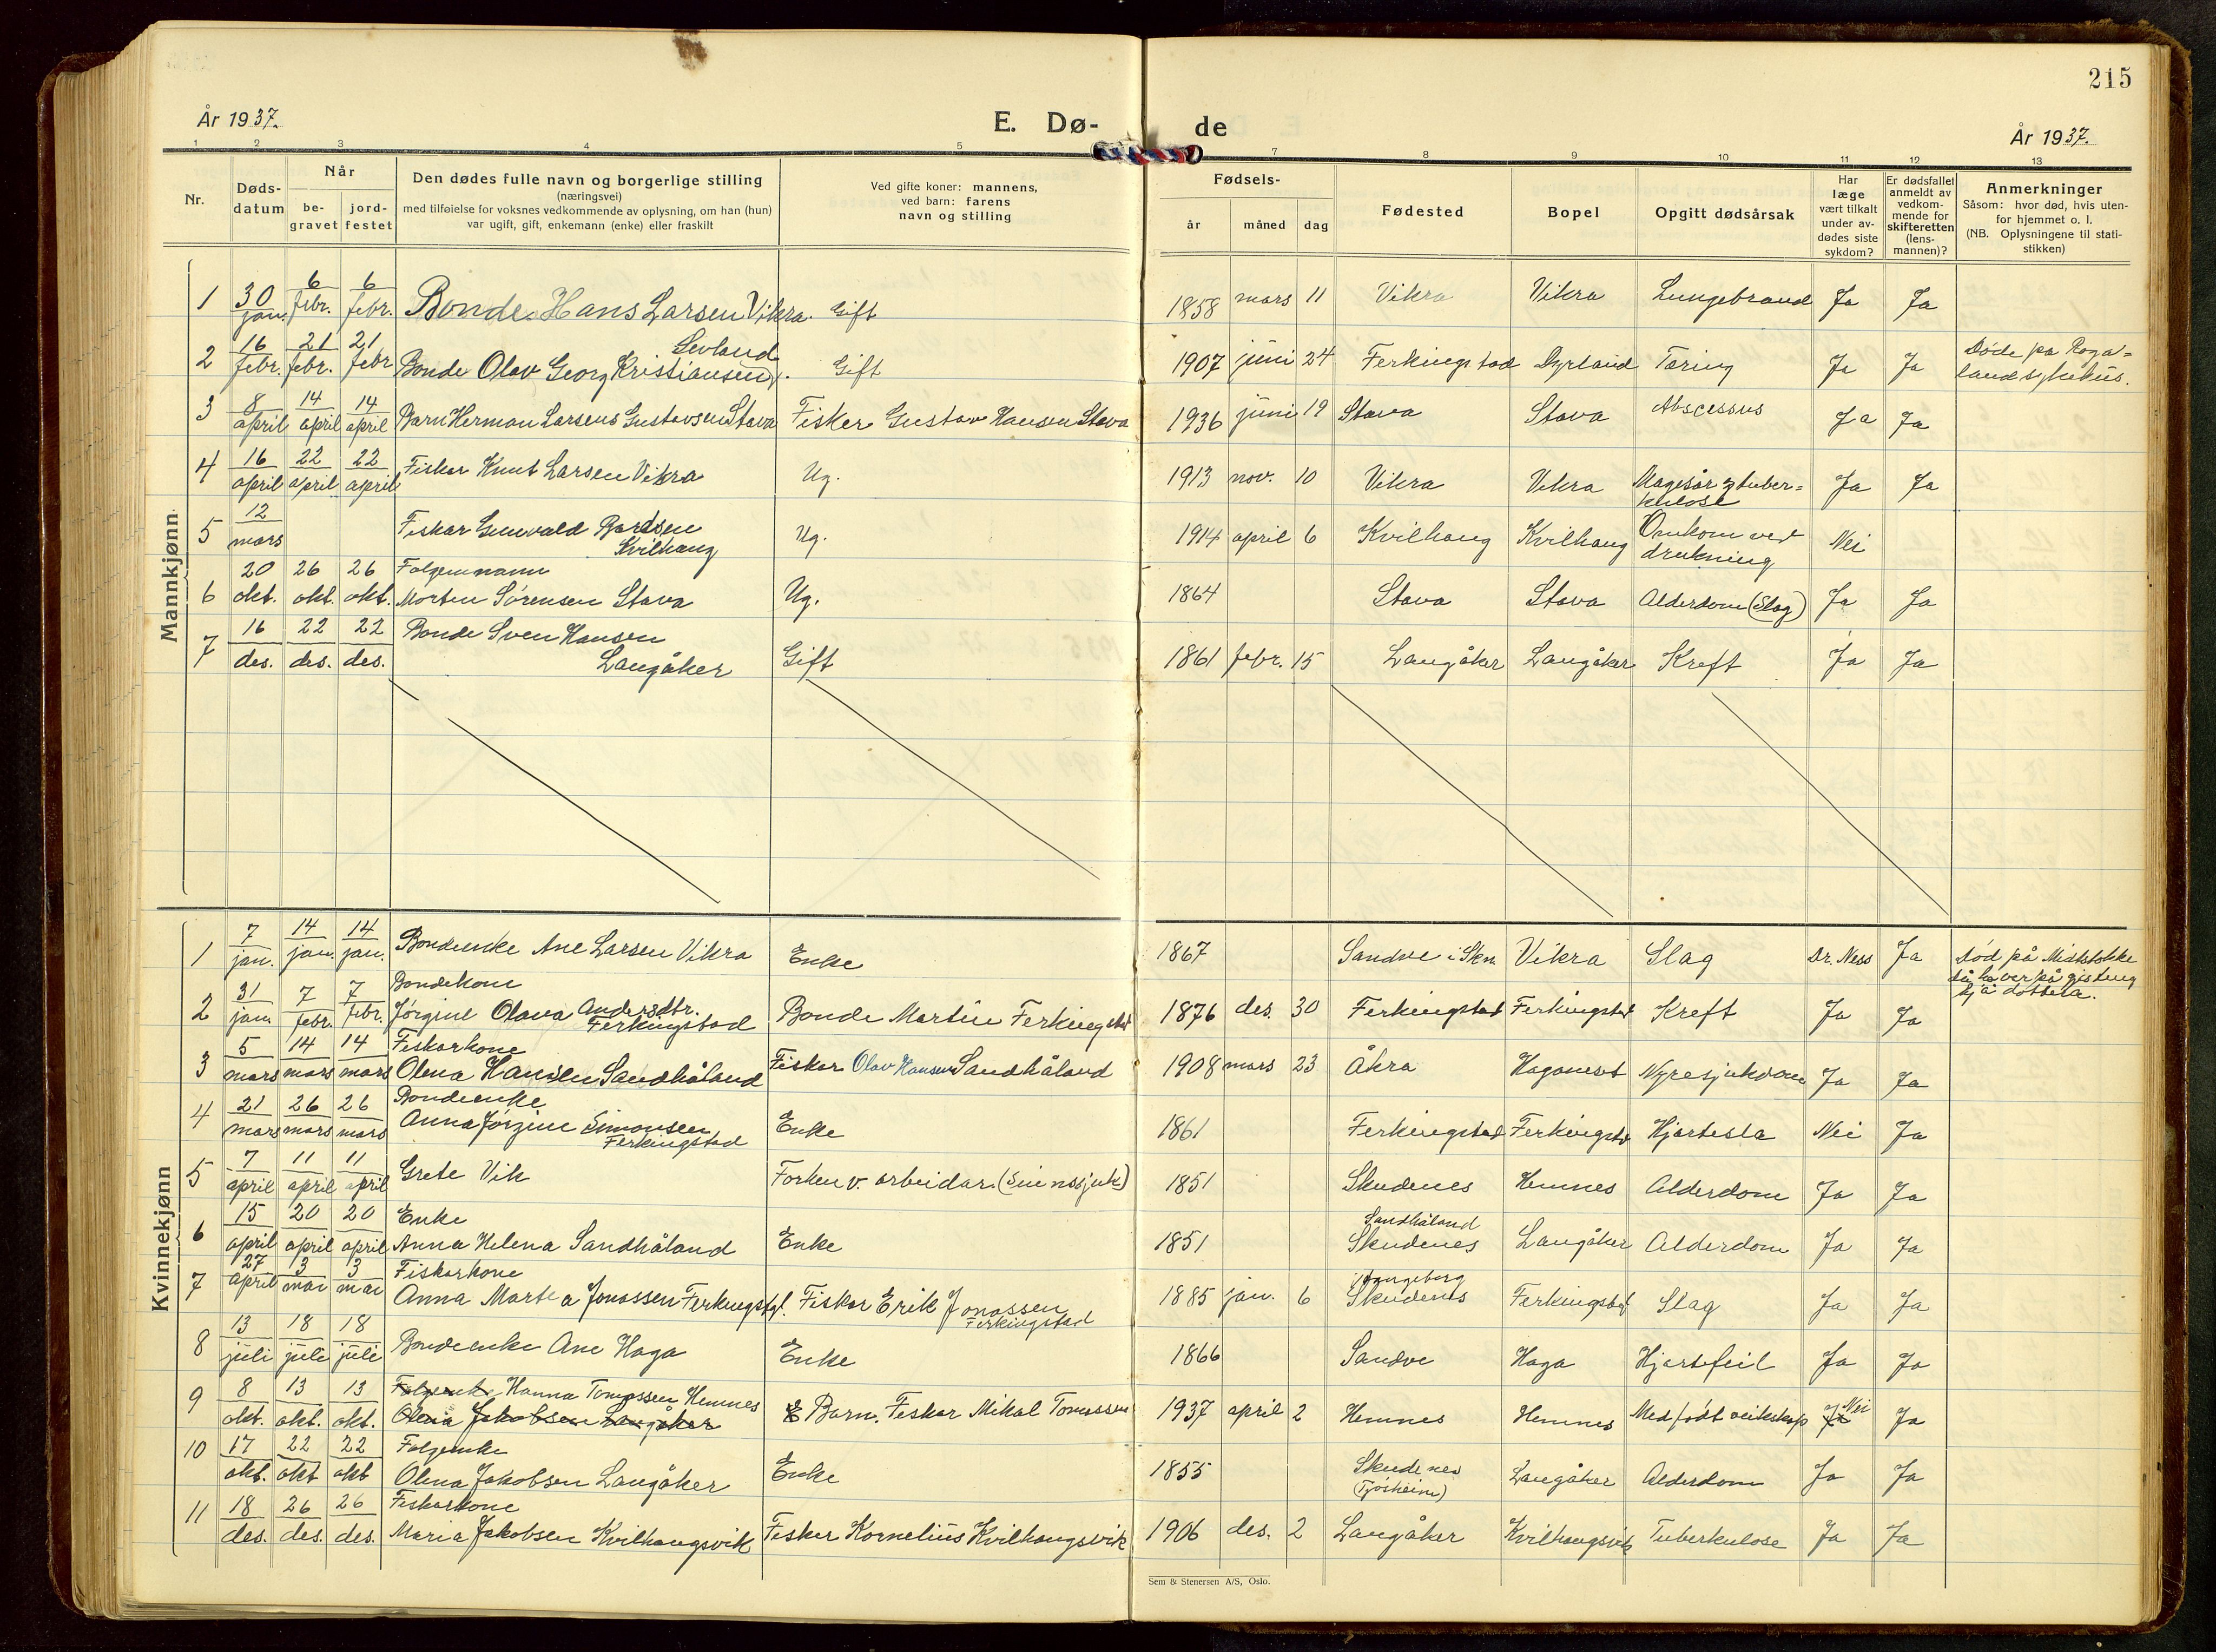 215
År 1937.
E. Dø-
de
År 1937.
1 2 3 4 5 7 8 9 10 11 12 13
Nr.
Døds-
datum
Når
be-
gravet
jord-
festet
Den dødes fulle navn og borgerlige stilling
(næringsvei)
med tilføielse for voksnes vedkommende av oplysning, om han (hun)
var ugift, gift, enkemann (enke) eller fraskilt
Ved gifte koner: mannens,
ved barn: farens
navn og stilling
Fødsels-
år måned dag
Fødested
Bopel
Opgitt dødsårsak
Har
læge
vært tilkalt
under av-
dødes siste
sykdom?
Er dødsfallet
anmeldt av
vedkom-
mende for
skifteretten
(lens-
mannen)?
Anmerkninger
Såsom: hvor død, hvis uten-
for hjemmet o. l.
(NB. Oplysningene til stati-
stikken)
Mannkjønn
1 30 jan. 6 febr. 6 febr. Bonde Hans Larsen Vikra. Gift 1858 mars 11 Vikra Vikra Lungebrand Ja Ja
2 16 febr. 21 febr. 21 febr Bonde Olav Georg Kristiansen Gift 1907 juni 24 Ferkingstad Tæring Ja Ja Døde på Roga=
landsykehus.
3 8 april 14 april 14 april Barn Herman Larsens Gustavsen Stava Fisker Gustav Hansen Stava 1936 juni 19 Stava Stava Abscessus Ja Ja
4 16 april 22 april 22 april Fisker Knut Larsen Vikra Ug. 1913 nov. 10 Vikra Vikra Magesår tuber=
kulose Ja Ja
5 12 mars Fiskar Gunvald Bardsen
Kvilhaug Ug. 1914 april 6 Kvilhaug Kvilhaug Omkom ved
drukning Nei
6 20 okt. 26 okt. 26 okt. Folgemann
Morten Sørensen Stava Ug. 1864 Stava Stava Alderdom (Slag) Ja Ja
7 16 des. 22 des. 22 des. Bonde Sven Hansen
Langåker Gift 1861 febr. 15 Langåker Langåker Kreft Ja Ja
Kvinnekjønn
1 7 jan. 14 jan. 14 jan. Bondeenke Ane Larsen Vikra Enke 1867 Sandve i Skn. Vikra Slag Dr. Ness Ja Død på
på gisting
2 31 jan 7 febr. 7 febr. Bondekone
Jørgine Olava Andersdtr.
Ferkingstad Bonde Martin Ferkingstad 1876 des. 30 Ferkingstad Ferkingstad Kreft Ja Ja
3 5 mars 14 mars 14 mars Fiskarkone
Olena Hansen Sandhåland Fiskar Olav Hansen Sandhåland 1908 mars 23 Åkra Haganest Nyresjukdom Ja Ja
4 21 mars 26 mars 26 mars Bondeenke
Anna Jørgine Simonsen
Ferkingstad Enke 1861 Ferkingstad Ferkingstad Hjartesla Nei Ja
5 7 april 11 april 11 april Grete Vik Forhen v. arbeidar. (Sinnssjuk) 1851 Skudenes Hemnes Alderdom Ja Ja
6 15 april 20 april 20 april Enke
Anna Helena Sandhåland Enke 1851 Sandhåland
Skudenes Langåker Alderdom Ja Ja
7 27 april 3 mai 3 mai Fiskarkone
Anna Martea Jonassen Ferkingstd. Fiskar Erik Jonassen
Ferkingstad 1885 jan. 6 Skudenes Ferkingstad Slag Ja Ja
8 13 juli 18 juli 18 juli Bondeenke Ane Haga Enke 1866 Sandve Haga Hjartefeil Ja Ja
9 8 okt. 13 okt. 13 okt. Folgeenke Hanna Tomassen Hemnes
Olena Jakobsen Langåker E Barn. Fiskar Mikal Tomassen 1937 april 2 Hemnes Hemnes Medfødt veikskap Ja Nei Ja
10 17 okt. 22 okt 22 okt Folgeenke
Olena Jakobsen Langåker Enke 1855 Skudenes
(Tjøsheim) Langåker Alderdom Ja Ja
11 18 des. 26 des. 26 des. Fiskarkone
Maria Jakobsen Kvilhaugsvik Fisker Kornelius Kvilhaugsvik 1906 des. 2 Langåker Kvilhaugsvik Tuberkulose Ja Ja
Sem & Stenersen A/S, Oslo.